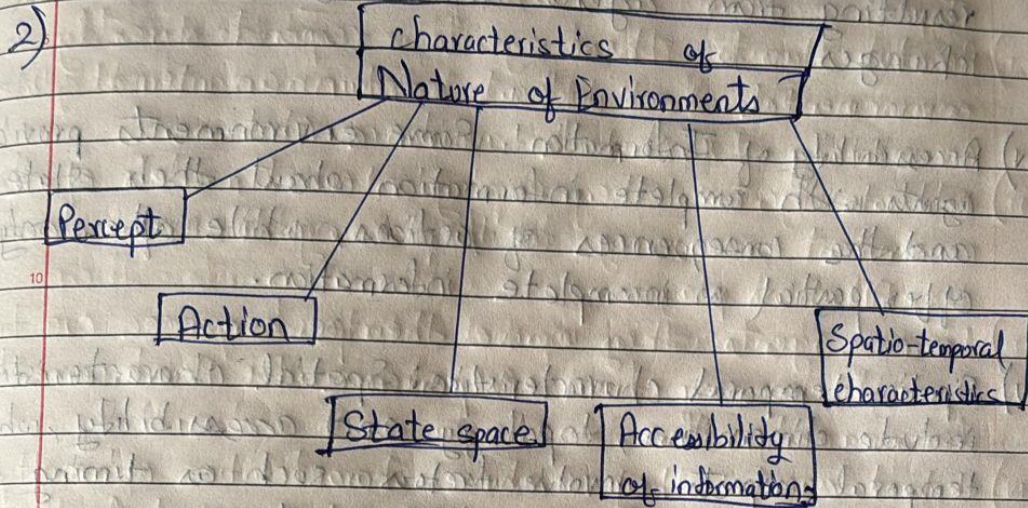 2)
Characteristics of
Nature of Environments
Percept
Action
State space
Accessibility
of information
Spatio-temporal
characteristics